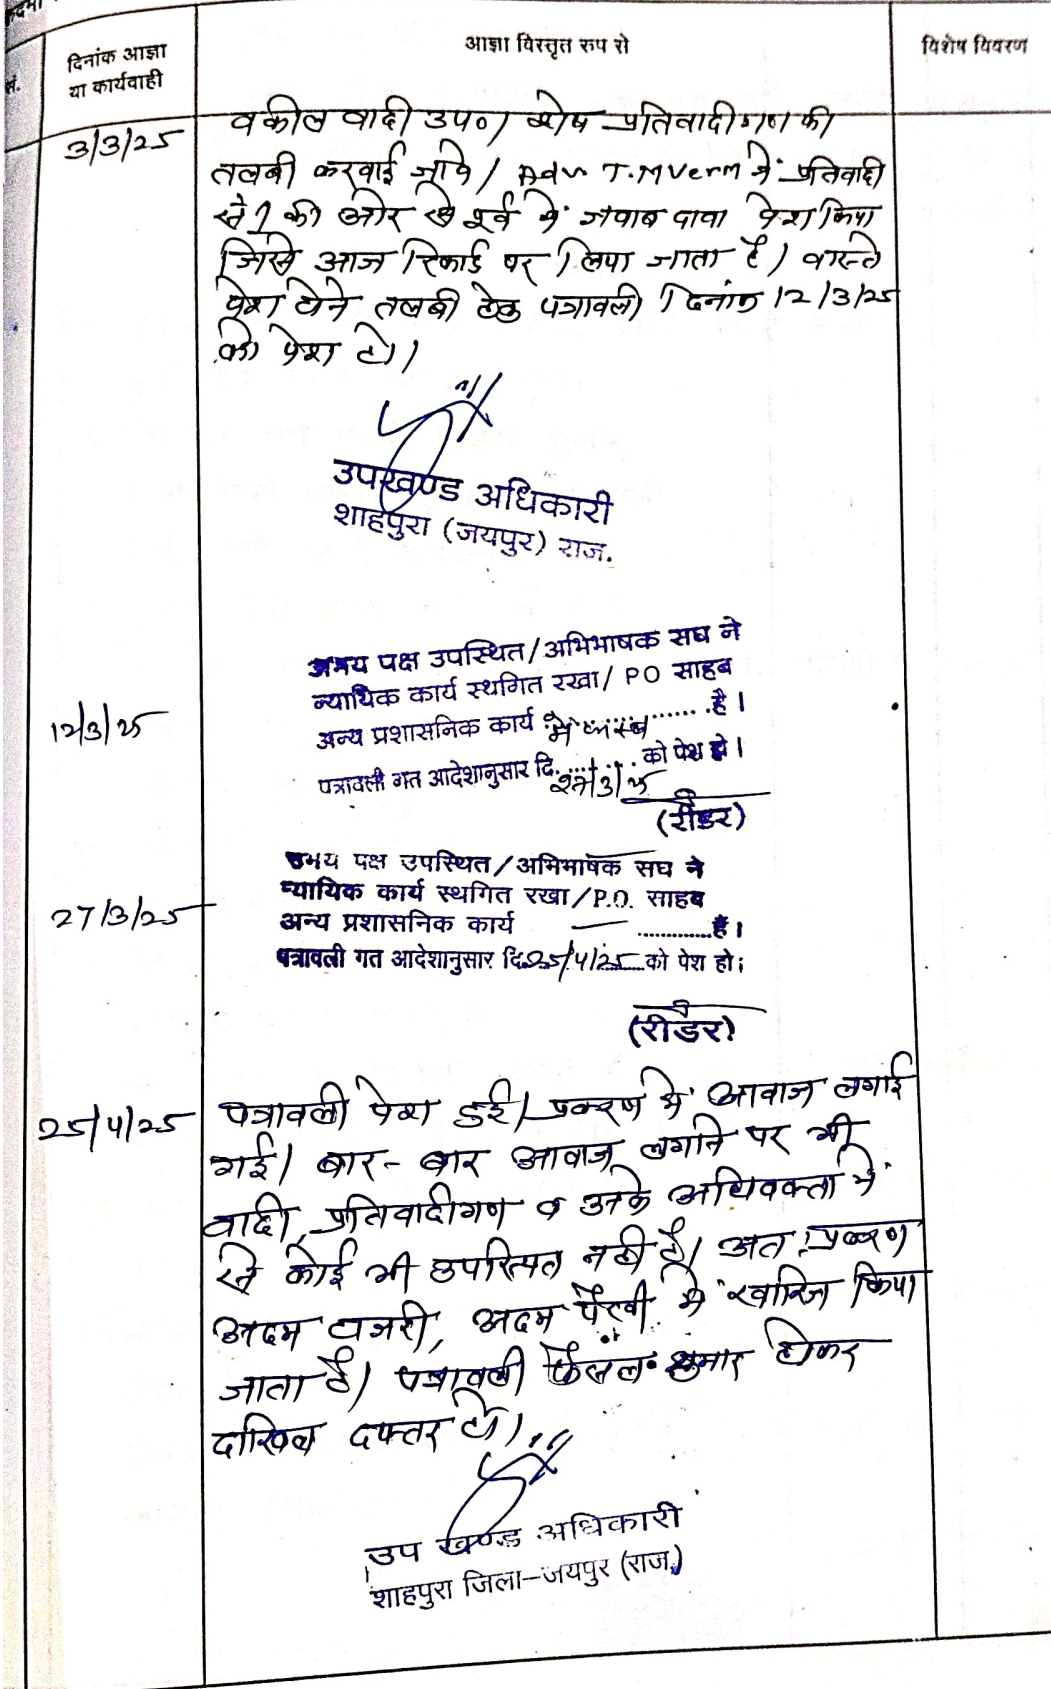 सं.
दिनांक आज्ञा
या कार्यवाही
आज्ञा विस्तृत रुप से
विशेष विवरण
3/3/25
वकील वादी उप०। शेष प्रतिवादीगण की
तलबी करवाई जावे। Adv. T.M Verm ने प्रतिवादी
सं 1 की ओर से पूर्व में जवाब दावा पेश किया
जिसे आज रिकार्ड पर लिया जाता है। वास्ते
पेश होने तलबी हेतु पत्रावली दिनांक 12/3/25
को पेश हो।
उपखण्ड अधिकारी
शाहपुरा (जयपुर) राज.
12/3/25
उभय पक्ष उपस्थित/अभिभाषक सघ ने
न्यायिक कार्य स्थगित रखा/ PO साहब
अन्य प्रशासनिक कार्य में व्यस्त है।
पत्रावली गत आदेशानुसार दि. 27/3/25 को पेश हो।
(रीडर)
27/3/25
उभय पक्ष उपस्थित/अभिभाषक सघ ने
न्यायिक कार्य स्थगित रखा/P.O. साहब
अन्य प्रशासनिक कार्य — ............है।
पत्रावली गत आदेशानुसार दि.25/4/25 को पेश हो।
(रीडर)
25/4/25
पत्रावली पेश हुई। प्रकरण में आवाज लगाई
गई। बार-बार आवाज लगाने पर भी
वादी, प्रतिवादीगण व उनके अधिवक्ता में
से कोई भी उपस्थित नही है। अत: प्रकरण
अदम हाजरी, अदम पैरवी में खारिज किया
जाता है। पत्रावली फैसल शुमार होकर
दाखिल दफ्तर हो।
उप खण्ड अधिकारी
शाहपुरा जिला-जयपुर (राज.)